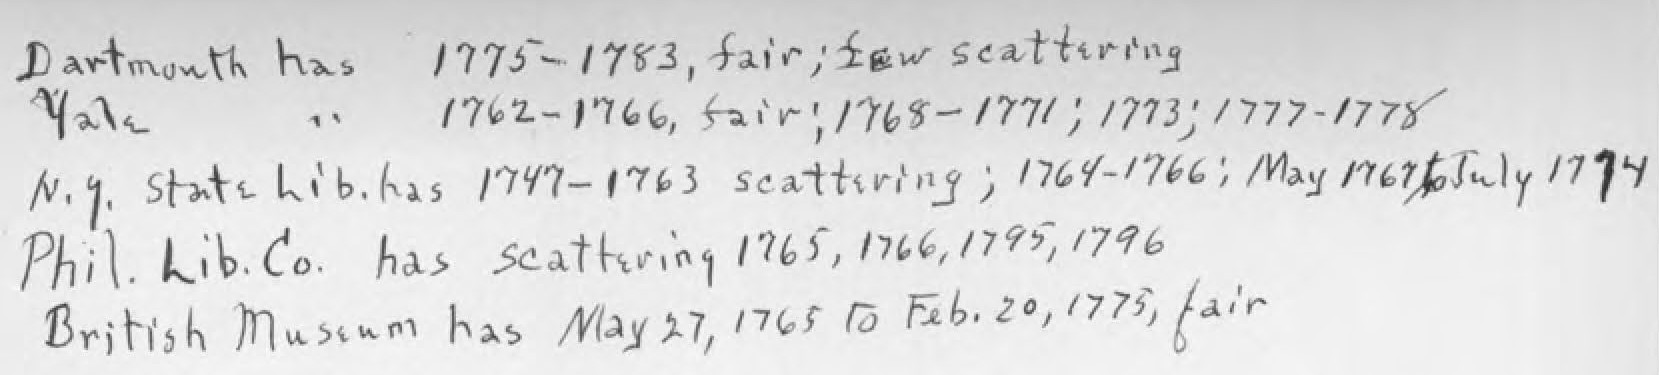 Dartmouth has 1775-1783, fair; few scattering
Yale " 1762-1766, fair; 1768-1771; 1773; 1777-1778
N.Y. State Lib. has 1747-1763 scattering; 1764-1766; May 1767 to July 1774
Phil. Lib. Co. has scattering 1765, 1766, 1795, 1796
British Museum has May 27, 1765 To Feb. 20, 1775, fair